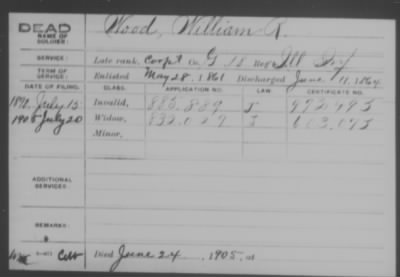 DEAD
NAME OF SOLDIER: Wood, William R.
SERVICE: Late rank, Corp'l Co. G, Reg't Ill Inf
TERM OF SERVICE: Enlisted May 28, 1861 Discharged June 11, 1864
DATE OF FILING. CLASS. APPLICATION NO. LAW CERTIFICATE NO.
July 15 Invalid, 885.889 J
1905 July 20 Widow, J
Minor,
ADDITIONAL SERVICES:
REMARKS:
Died June 24, 1905, at